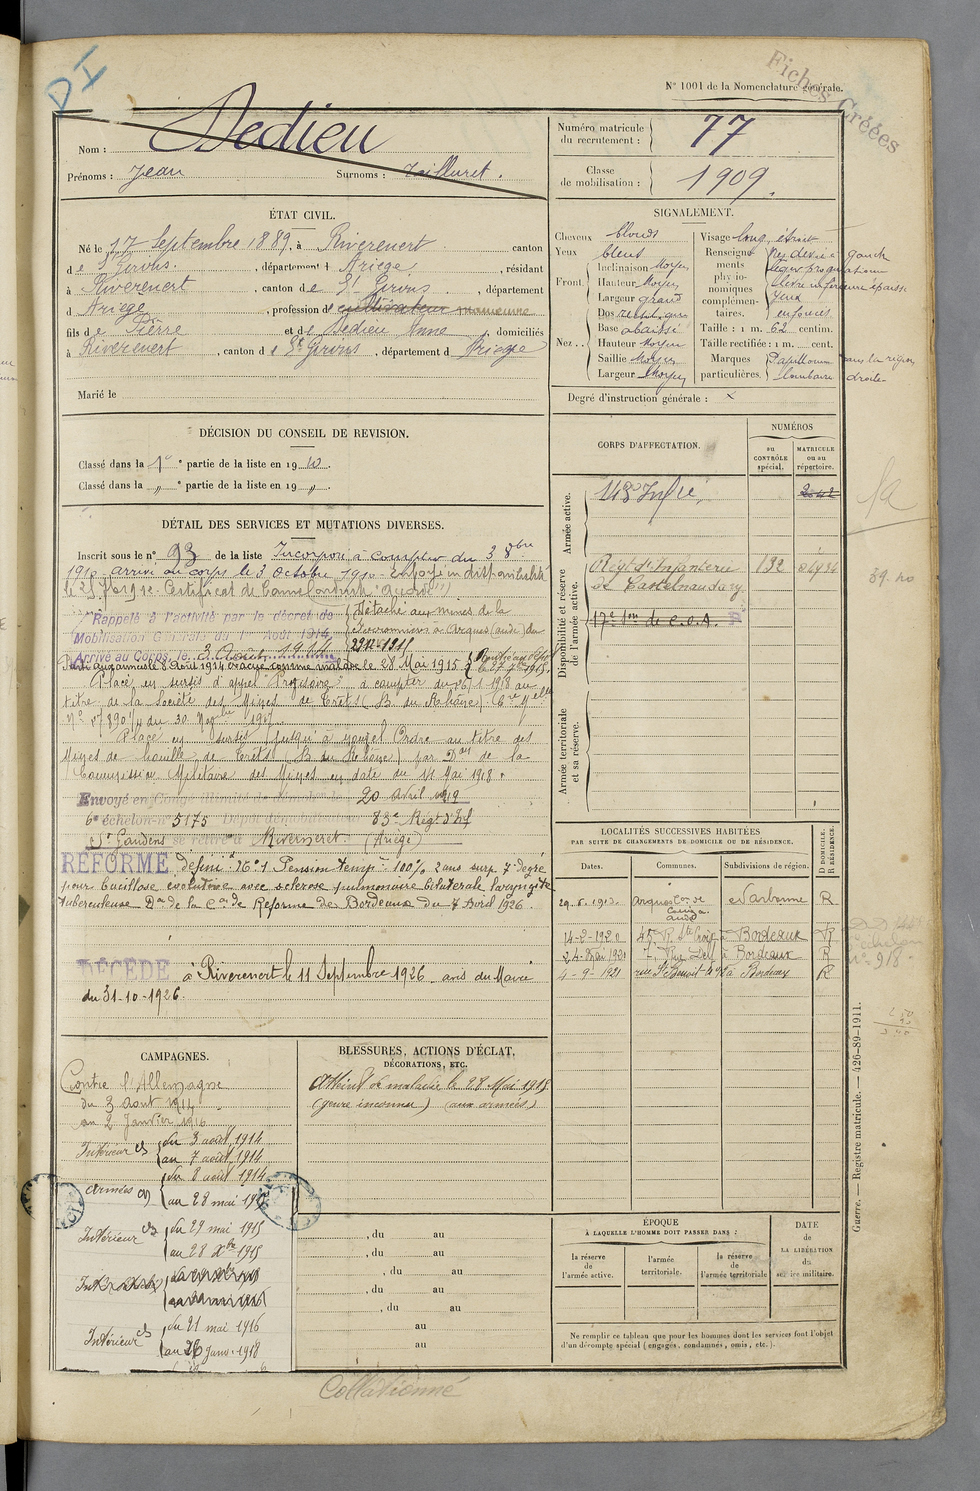 DI
Fiches Créées
N° 1001 de la Nomenclature générale.
Nom : Dedieu
Prénoms : Jean Surnoms :
Numéro matricule du recrutement : 77
Classe de mobilisation : 1909.
ÉTAT CIVIL.
Né le 17 Septembre 1889, à Riverenert canton
de St Girons, département d Ariège, résidant
à Riverenert, canton de St Girons, département
d Ariège, profession de cultivateur
fils de Pierre et de Dedieu Anna, domiciliés
à Riverenert, canton de St Girons, département d Ariège
Marié le
SIGNALEMENT.
Cheveux blonds
Yeux bleus
Front. Inclinaison Moyen
Hauteur Moyen
Largeur grand
Nez. Dos rectiligne
Base abaissé
Hauteur Moyen
Saillie Moyen
Largeur Moyen
Visage long, étroit
Renseignements physionomiques complémentaires.
lèvre inférieure épaisse
yeux enfoncés
Taille : 1 m. 62 centim.
Taille rectifiée : 1 m. cent.
Marques particulières. Papillome dans la région
lombaire droite
Degré d'instruction générale : X
DÉCISION DU CONSEIL DE REVISION.
Classé dans la 1e partie de la liste en 1910.
Classé dans la " partie de la liste en 19 ".
DÉTAIL DES SERVICES ET MUTATIONS DIVERSES.
Inscrit sous le n° 93 de la liste Incorporé à compter du 3 8bre
1910 arrivé au corps le 3 Octobre 1910. Envoyé en disponibilité
le 25 7bre 1912. Certificat de bonne conduite accordé
Rappelé à l'activité par le décret de
Mobilisation Générale du 1er Août 1914
Arrivé au Corps, le 3 Août 1914
Détaché aux mines de la
à Arques (aude) du
29 Xbre 1915
Parti aux armées le 8 Août 1914 évacué comme malade le 28 Mai 1915
Placé en sursis d'appel Provisoire à compter du 26/1 1918 au
titre de la Société des Mines de Trets (B. du Rhône)
du 30 Novbre 1917
Placé en sursis jusqu'à nouvel Ordre au titre des
Mines de houille de Trets (B. du Rhône) par Don de la
Commission Militaire des Mines en date du 14 Mai 1918.
Envoyé en Congé illimité de démobilisation le 20 Avril 1919
6e échelon n° 5175 Dépôt démobilisateur 83e Régt d'Inf
St Gaudens se retire à Riverneret (Ariège)
RÉFORMÉ défini N° 1 Pension temp. 100% 2 ans surp. 7e degré
pour bacillose évolutive avec sclérose pulmonaire bilatérale laryngite
tuberculeuse Don de la Con de Réforme de Bordeaux du 7 Avril 1926.
DÉCÉDÉ à Riverenert le 11 Septembre 1926 avis du Maire
du 31-10-1926.
CORPS D'AFFECTATION.
NUMÉROS
au CONTRÔLE spécial.
MATRICULE ou au répertoire.
Armée active.
143e Infie.
Disponibilité et réserve de l'armée active.
Régt d'Infanterie de Castelnaudary 132
17e Son de C.O.A.
Armée territoriale et sa réserve.
LOCALITÉS SUCCESSIVES HABITÉES
PAR SUITE DE CHANGEMENTS DE DOMICILE OU DE RÉSIDENCE.
Dates. Communes. Subdivisions de région. D DOMICILE. R RÉSIDENCE.
29.6.1913. Arques Con de Couiza aude Narbonne R
14-2-1920 45 R. Ste Croix à Bordeaux R
à Bordeaux R
4-9-1921 à Bordeaux R
CAMPAGNES.
Contre l'Allemagne
du 3 Aout 1914
au 2 Janvier 1916
Intérieur CS du 3 août 1914
au 7 août 1914
Armées CD du 8 août 1914
au 28 mai 1915
Intérieur CS du 29 mai 1915
au 28 Xbre 1915
Intérieur CS du 21 mai 1916
au 26 Janv. 1918
BLESSURES, ACTIONS D'ÉCLAT,
DÉCORATIONS, ETC.
Atteint de maladie le 28 Mai 1915
(genre inconnu) (aux armées)
, du au
, du au
, du au
, du au
, du au
au
au
ÉPOQUE
À LAQUELLE L'HOMME DOIT PASSER DANS :
la réserve de l'armée active.
l'armée territoriale.
la réserve de l'armée territoriale
DATE de LA LIBÉRATION du service militaire.
Ne remplir ce tableau que pour les hommes dont les services font l'objet
d'un décompte spécial (engagés, condamnés, omis, etc.).
Guerre. — Registre matricule. — 426-89-1911.
Collationné